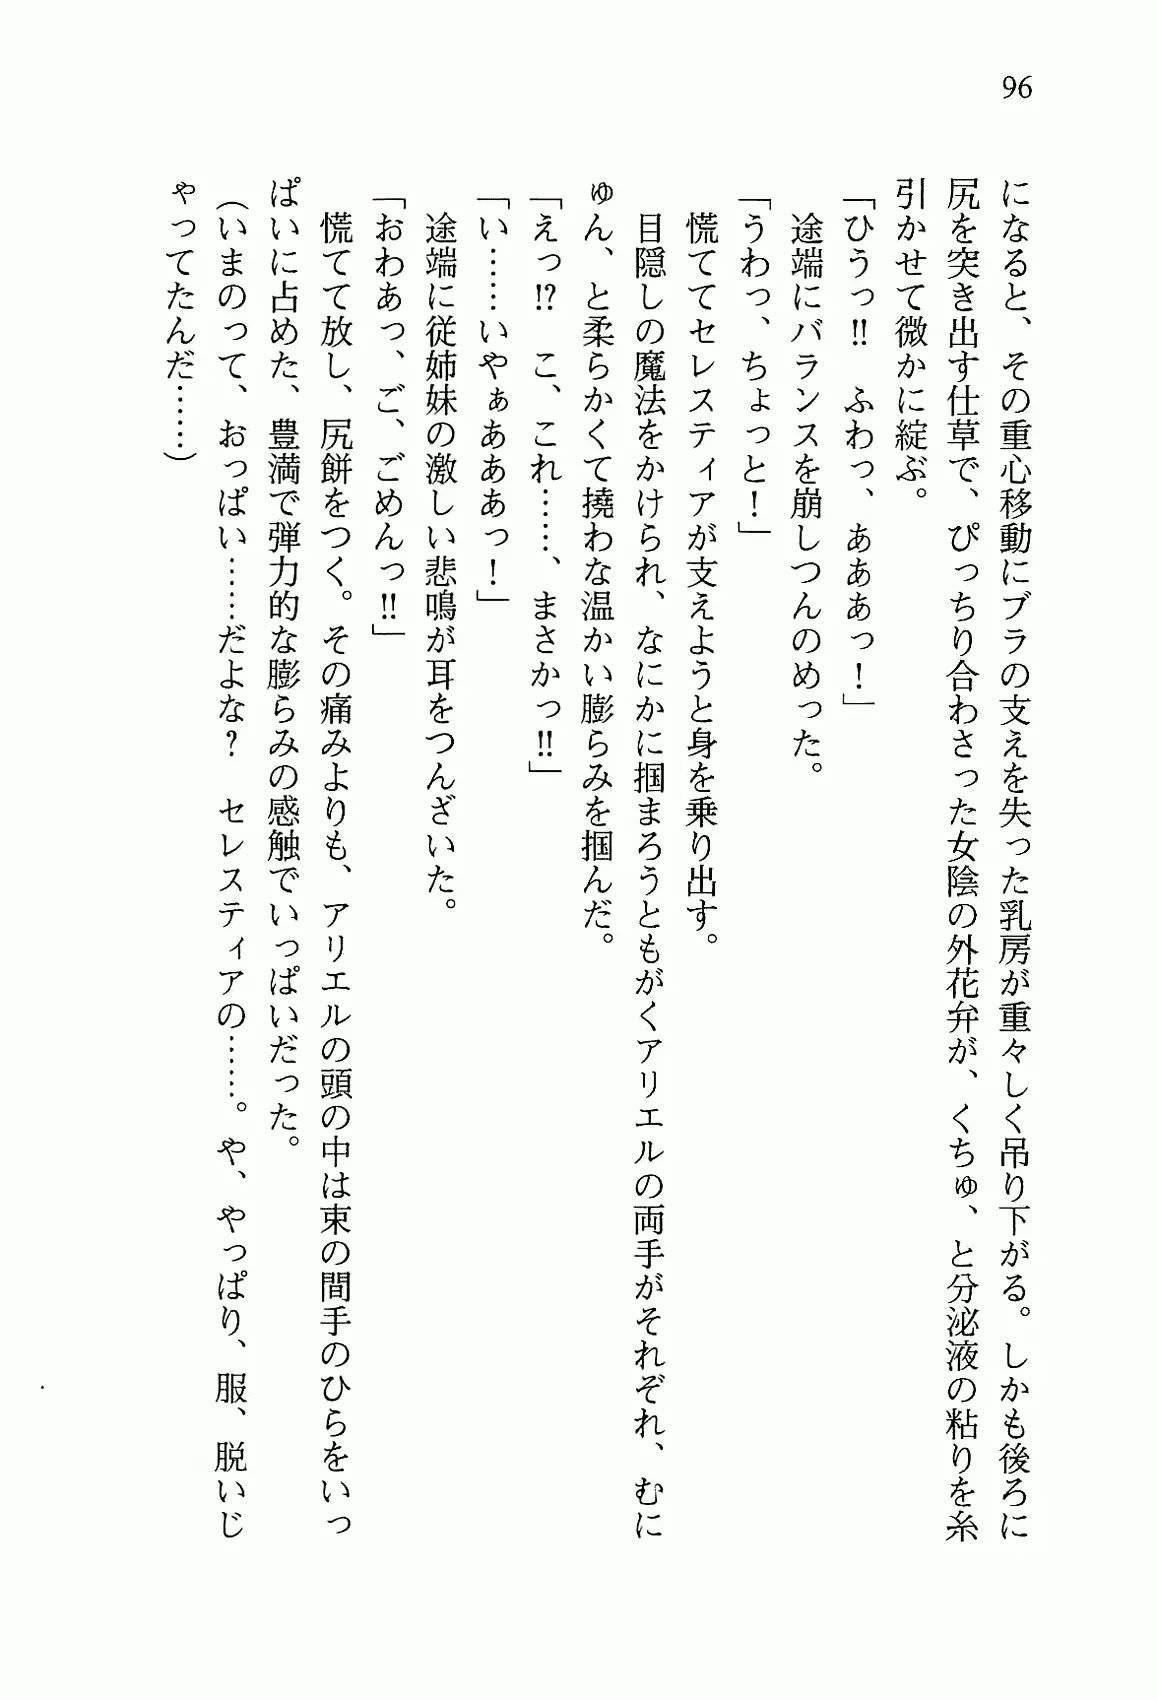 96
になると、その重心移動にブラの支えを失った乳房が重々しく吊り下がる。しかも後ろに
尻を突き出す仕草で、ぴっちり合わさった女陰の外花弁が、くちゅ、と分泌液の粘りを糸
引かせて微かに綻ぶ。
「ひうっ!! ふわっ、あああっ!」
途端にバランスを崩しつんのめった。
「うわっ、ちょっと!」
慌ててセレスティアが支えようと身を乗り出す。
目隠しの魔法をかけられ、なにかに掴まろうともがくアリエルの両手がそれぞれ、むに
ゅん、と柔らかくて撓わな温かい膨らみを掴んだ。
「えっ!? こ、これ……、まさかっ!!」
「い……いやぁあああっ!」
途端に従姉妹の激しい悲鳴が耳をつんざいた。
「おわあっ、ご、ごめんっ!!」
慌てて放し、尻餅をつく。その痛みよりも、アリエルの頭の中は束の間手のひらをいっ
ぱいに占めた、豊満で弾力的な膨らみの感触でいっぱいだった。
(いまのって、おっぱい……だよな? セレスティアの……。や、やっぱり、服、脱いじ
ゃってたんだ……)